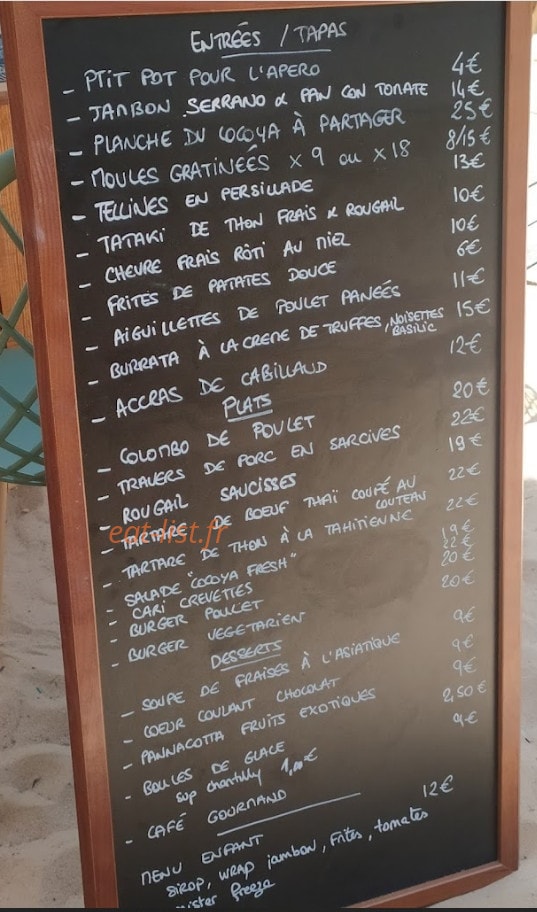 ENTRÉES / TAPAS
- PTIT POT POUR L'APERO 4€
- JAMBON SERRANO & PAN CON TOMATE 14€
- PLANCHE DU COCOYA À PARTAGER 25€
- MOULES GRATINEÉS x 9 ou x 18 8/15€
- TELLINES EN PERSILLADE 13€
- TATAKI DE THON FRAIS & ROUGAIL 10€
- CHEVRE FRAIS RÔTI AU MIEL 10€
- FRITES DE PATATES DOUCE 6€
- AIGUILLETTES DE POULET PANEÉS 11€
- BURRATA À LA CREME DE TRUFFES, NOISETTES 15€
BASILIC
- ACCRAS DE CABILLAUD 12€
PLATS
- COLOMBO DE POULET 20€
- TRAVERS DE PORC EN SARCIVES 22€
- ROUGAIL SAUCISSES 19€
- TARTARE DE BOEUF THAÏ COUPÉ AU 22€
COUTEAU
- TARTARE DE THON À LA TAHITIENNE 22€
- SALADE "COCOYA FRESH" 19€
- CARI CREVETTES 22€
- BURGER POULET 20€
- BURGER VEGETARIEN 20€
DESSERTS
- SOUPE DE FRAISES À L'ASIATIQUE 9€
- COEUR COULANT CHOCOLAT 9€
- PANNACOTTA FRUITS EXOTIQUES 9€
- BOULES DE GLACE 2,50€
sup chantilly 1,00€
- CAFÉ GOURMAND 9€
MENU ENFANT 12€
SIROP, WRAP jambon, Frites, tomates
mister freeze
eat-list.fr